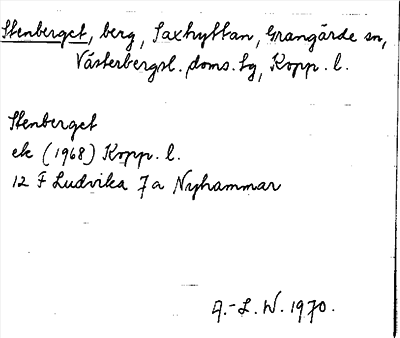 Stenberget, berg, Saxhyttan, Grangärde sn,
Västerbergsl. doms. tg, Kopp. l.
Stenberget
ek (1968) Kopp. l.
12 F Ludvika 7a Nyhammar
A.-L. W. 1970.